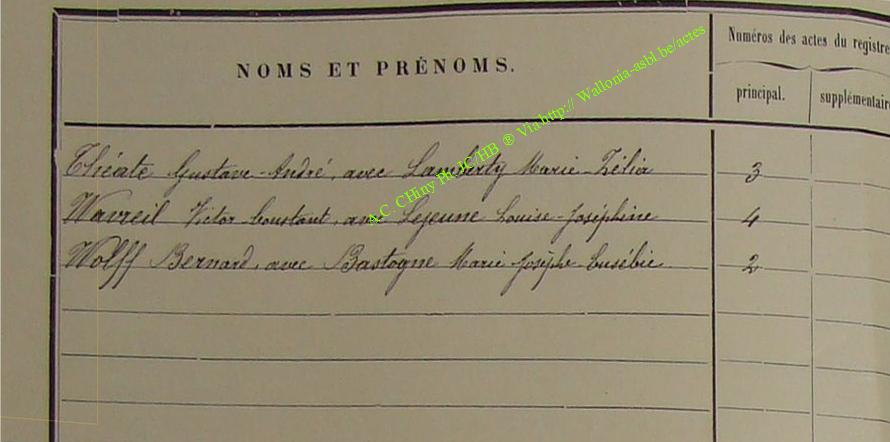 NOMS ET PRÉNOMS.
Numéros des actes du registre
principal.
supplémentaire
Théate Gustave-André, avec Lamberty Marie-Zélia 3
Wavreil Victor Constant, avec Lejeune Louise-Joséphine 4
Wolff Bernard, avec Bastogne Marie Josèphe Eusébie 2
A.C CHiny Ph JC/HB ® Via http:// Wallonia-asbl.be/actes